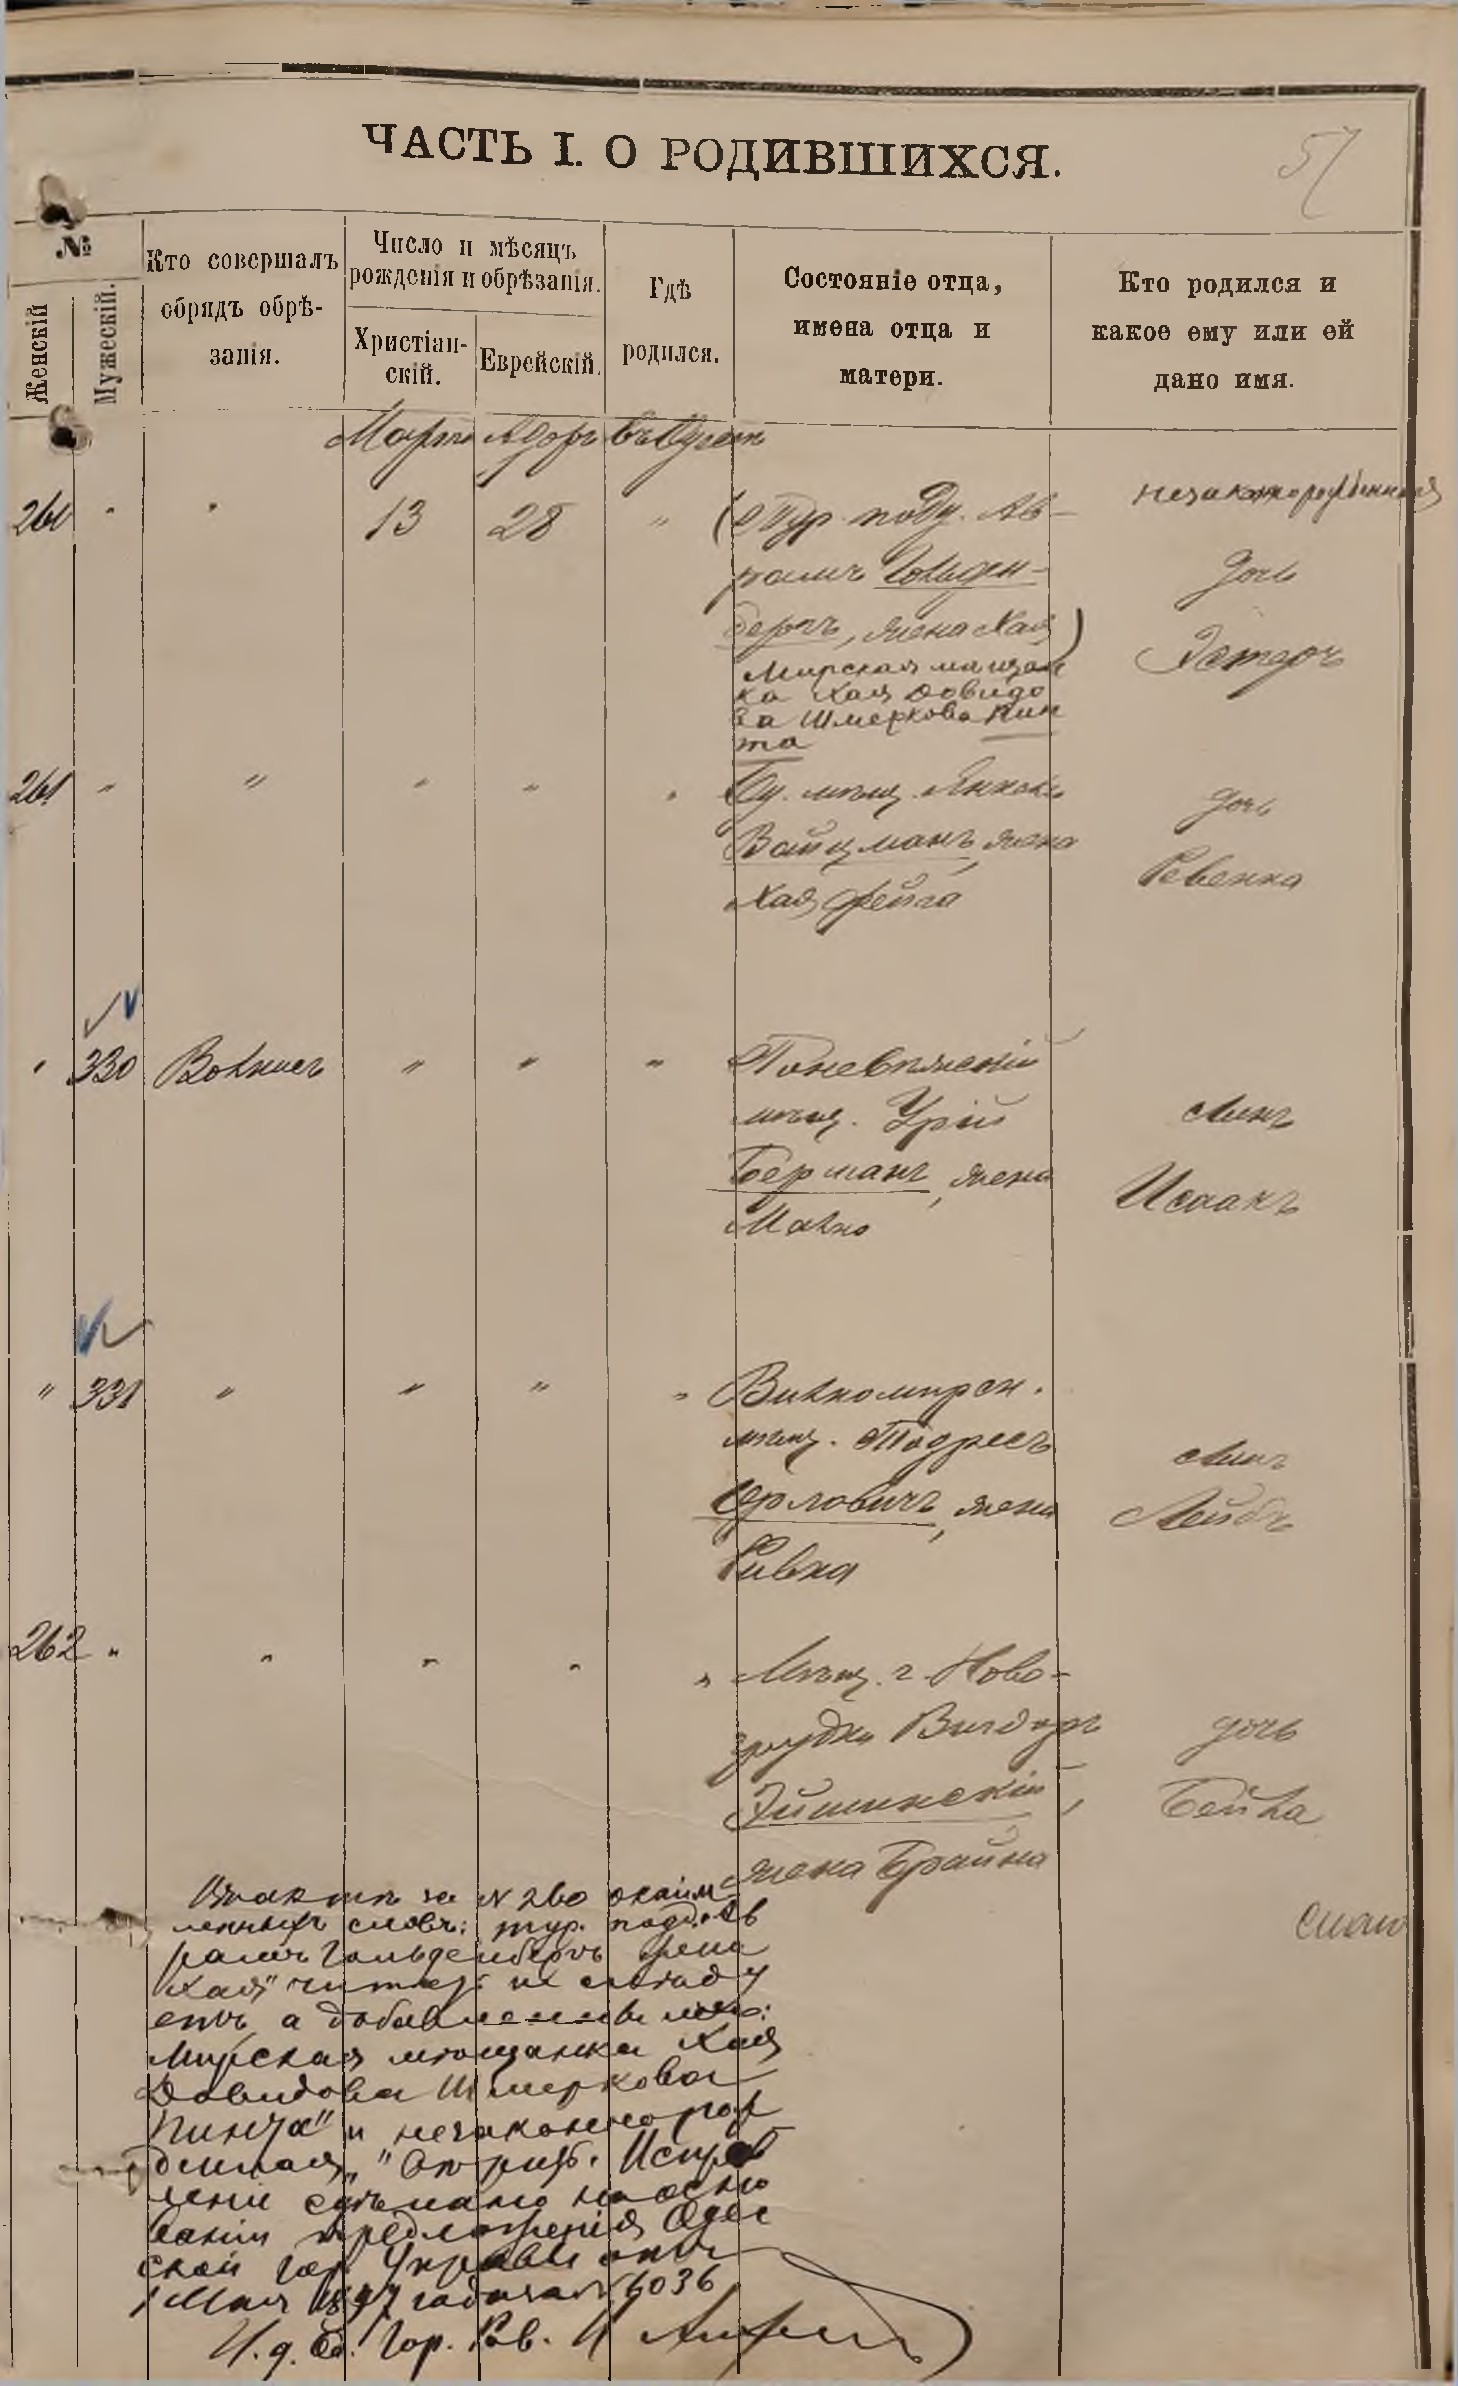 ЧАСТЬ I. О РОДИВШИХСЯ.
57
№
Женскій
Мужескій.
Кто совершалъ
обрядъ обрѣ-
занія.
Число и мѣсяцъ
рожденія и обрѣзанія.
Христіан-
скій.
Еврейскій.
Гдѣ
родился.
Состояніе отца,
имена отца и
матери.
Кто родился и
какое ему или ей
дано имя.
Мартъ Адоръ въ
260 " " 13 28 " (Тур. подд. Ав-
рамъ Гольден-
бергъ, жена Хая)
Мирская мѣщан
ка Хая Довидо
ва Шмеркова Пин
та
незаконнорожденная
дочь
Эстеръ
261 " " " " "
мѣщ. Янкель
Вайцманъ, жена
Хая Фейга
дочь
Ревекка
" 330 Вольнисъ " " "
Поневѣжскій
мѣщ. Урій
Берманъ, жена
Малка
сынъ
Исаакъ
" 331 " " " "
Вилкомирск.
мѣщ. Тодресъ
Орловичъ, жена
Ривка
сынъ
Лейбъ
262 " " " " "
Мѣщ. г. Ново-
грудка Вигдоръ
Эйшинскій,
жена Брайна
дочь
Бейла
Въ актѣ за № 260 окайм
ленныхъ словъ: тур. подд. Ав
рамъ Гольденбергъ жена
Хая" читать не слѣду
етъ, а добавленныя
Мирская мѣщанка Хая
Довидова Шмеркова
Пинта" и незаконнорож
денная" Исправ
леніе сдѣлано на осно
ваніи предложенія Одес
ской Гор. Управы отъ
1 Мая 1897 года за № 6036
И. д. Од. Гор. Рав.